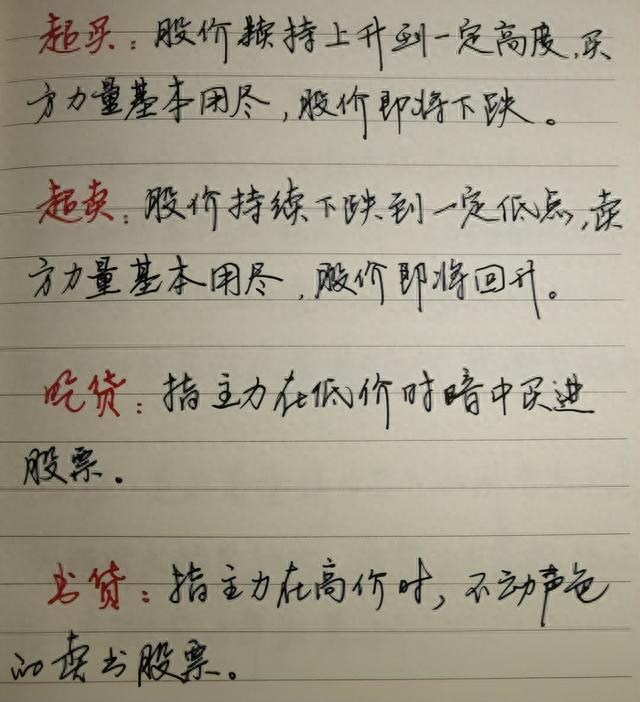 超买：股价持续上升到一定高度,买
方力量基本用尽,股价即将下跌。
超卖：股价持续下跌到一定低点,卖
方力量基本用尽,股价即将回升。
吃货：指主力在低价时暗中买进
股票。
出货：指主力在高价时,不动声色
的卖出股票。